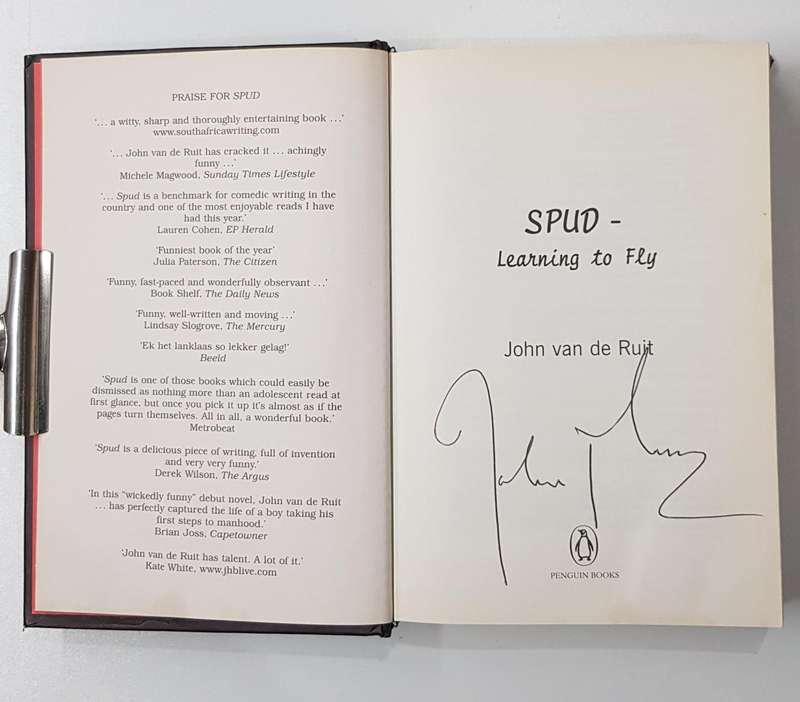 PRAISE FOR SPUD
‘… a witty, sharp and thoroughly entertaining book …’
www.southafricawriting.com
‘… John van de Ruit has cracked it … achingly
funny …’
Michele Magwood, Sunday Times Lifestyle
‘… Spud is a benchmark for comedic writing in the
country and one of the most enjoyable reads I have
had this year.’
Lauren Cohen, EP Herald
‘Funniest book of the year’
Julia Paterson, The Citizen
‘Funny, fast-paced and wonderfully observant …’
Book Shelf, The Daily News
‘Funny, well-written and moving …’
Lindsay Slogrove, The Mercury
‘Ek het lanklaas so lekker gelag!’
Beeld
‘Spud is one of those books which could easily be
dismissed as nothing more than an adolescent read at
first glance, but once you pick it up it’s almost as if the
pages turn themselves. All in all, a wonderful book.’
Metrobeat
‘Spud is a delicious piece of writing, full of invention
and very very funny.’
Derek Wilson, The Argus
‘In this “wickedly funny” debut novel, John van de Ruit
… has perfectly captured the life of a boy taking his
first steps to manhood.’
Brian Joss, Capetowner
‘John van de Ruit has talent. A lot of it.’
Kate White, www.jhblive.com
SPUD -
Learning to Fly
John van de Ruit
PENGUIN BOOKS